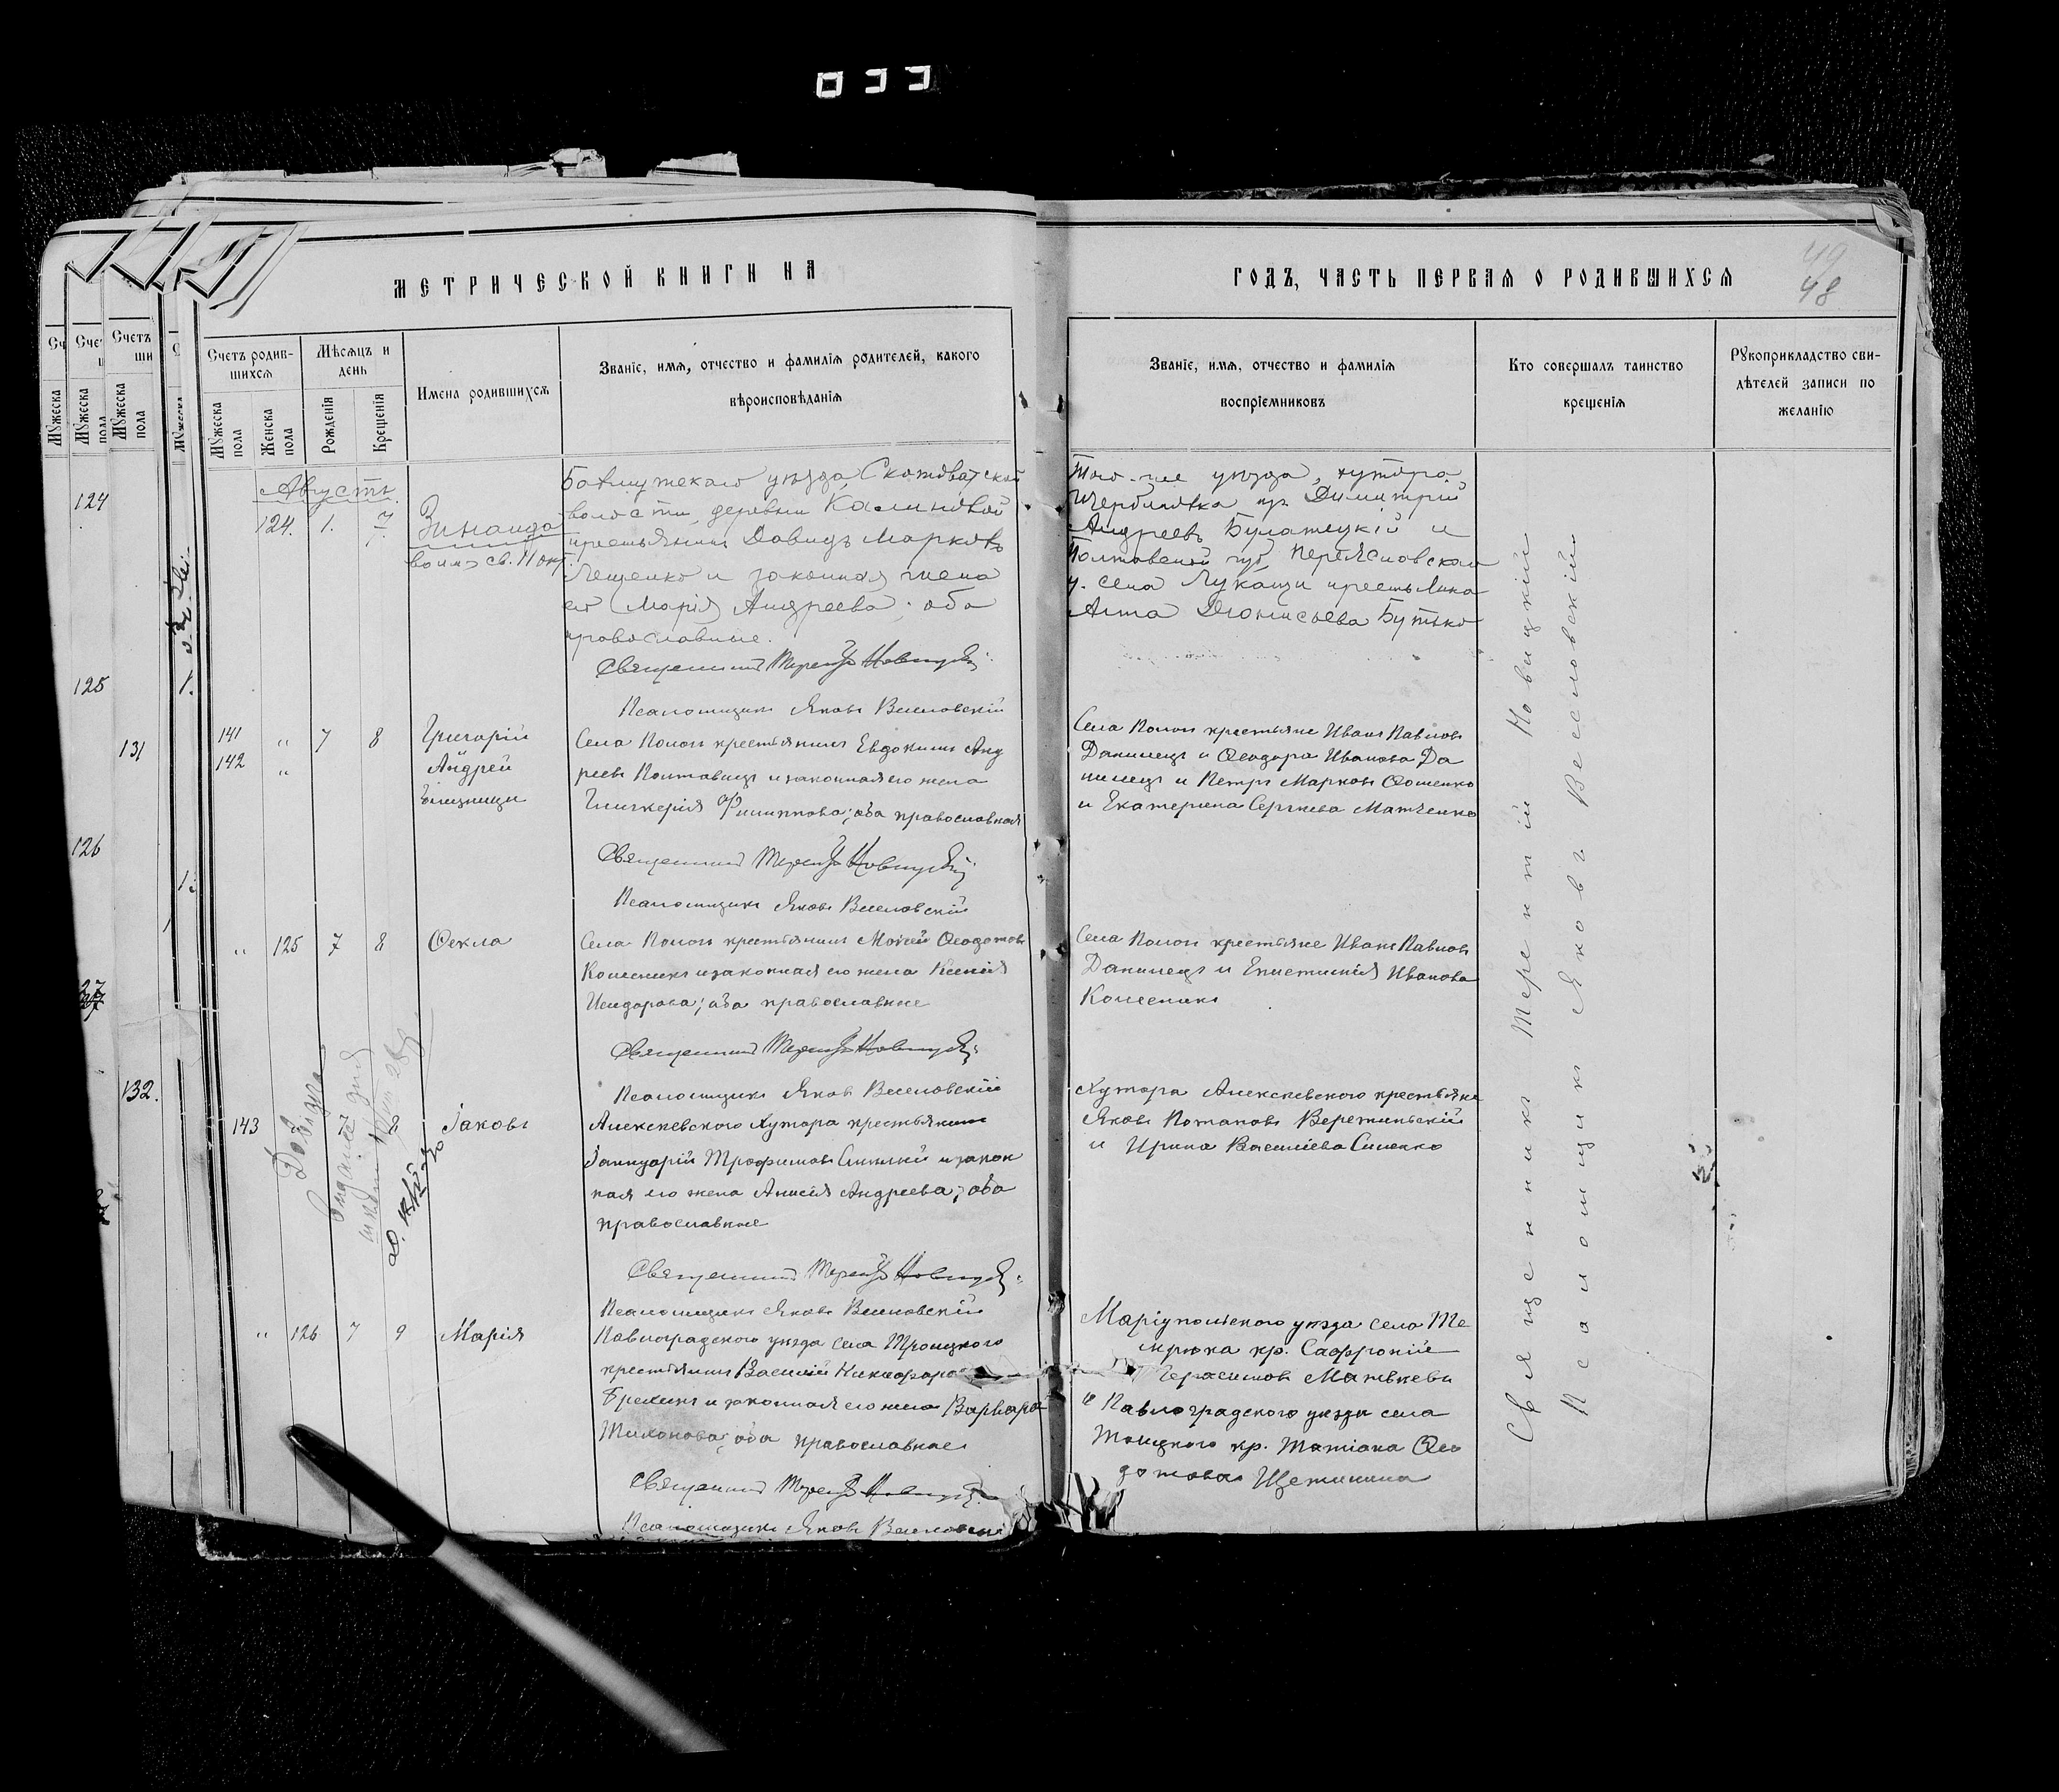 033
МЕТРИЧЕСКОЙ КНИГИ НА
ГОДЪ, ЧАСТЬ ПЕРВАЯ О РОДИВШИХСЯ
49
48
Счетъ родив-
шихся
Мѣсяцъ и
день
Имена родившихся
Званіе, имя, отчество и фамилія родителей, какого
вѣроисповѣданія
Мужеска
пола
Женска
пола
Рожденія
Крещенія
Званіе, имя, отчество и фамилія
воспріемниковъ
Кто совершалъ таинство
крещенія
Рукоприкладство сви-
дѣтелей записи по
желанію
Августъ
124. 1. 7. Зинаида
Бахмутскаго уѣзда, Скотоватской
волости, деревни Калиновой
крестьянинъ Давидъ Марковъ
Лещенко и законная жена
его Марія Андреева; оба
православные.
Священникъ Терентій Новицкій
Псаломщикъ Яковъ Веселовскій
Того-же уѣзда, хутора
Щербиновка кр. Димитрій
Андреевъ Булатецкій и
Полтавской губ. Переяславскаго
у. села Лукаши крестьянка
Анна Діонисьева Бутько
141 " 7 8 Григорій
142 " Андрей
близнецы
Села Попова крестьянинъ Евдокимъ Анд
реевъ Полтавецъ и законная его жена
Гликерія Филиппова; оба православная
Священникъ Терентій Новицкій
Псаломщикъ Яковъ Веселовскій
Села Попова крестьяне Иванъ Павловъ
Данилецъ и Ѳеодора Иванова Да
нилецъ и Петръ Марковъ Ѳоменко
и Екатерина Сергѣева Матченко
" 125 7 8 Ѳекла
Села Попова крестьянинъ Моисей Ѳеодотовъ
Колесникъ и законная его жена Ксенія
Исидорова; оба православные
Священникъ Терентій Новицкій
Псаломщикъ Яковъ Веселовскій
Села Попова крестьяне Иванъ Павловъ
Данилецъ и Епистимія Иванова
Колесникъ
143 " 7 8 Іаковъ
Алексѣевскаго Хутора крестьянинъ
Іаннуарій Трофимовъ и закон
ная его жена Анисія Андреева; оба
православные
Священникъ Терентій Новицкій
Псаломщикъ Яковъ Веселовскій
Хутора Алексѣевскаго крестьяне
Яковъ Потаповъ
и Ирина Василіева Синенко
" 126 7 9 Марія
Павлоградскаго уѣзда села Троицкаго
крестьянинъ Василій Никифоровъ
и законная его жена Варвара
Тихонова; оба православные
Священникъ Терентій Новицкій
Псаломщикъ Яковъ Веселовскій
Маріупольскаго уѣзда села Те
мрюка кр. Софроній
Герасимовъ
и Павлоградскаго уѣзда села
Троицкаго кр. Татіана Ѳео
дотова Щетинина
Священникъ Терентій Новицкій
Псаломщикъ Яковъ Веселовскій
124
125
126
131
132.